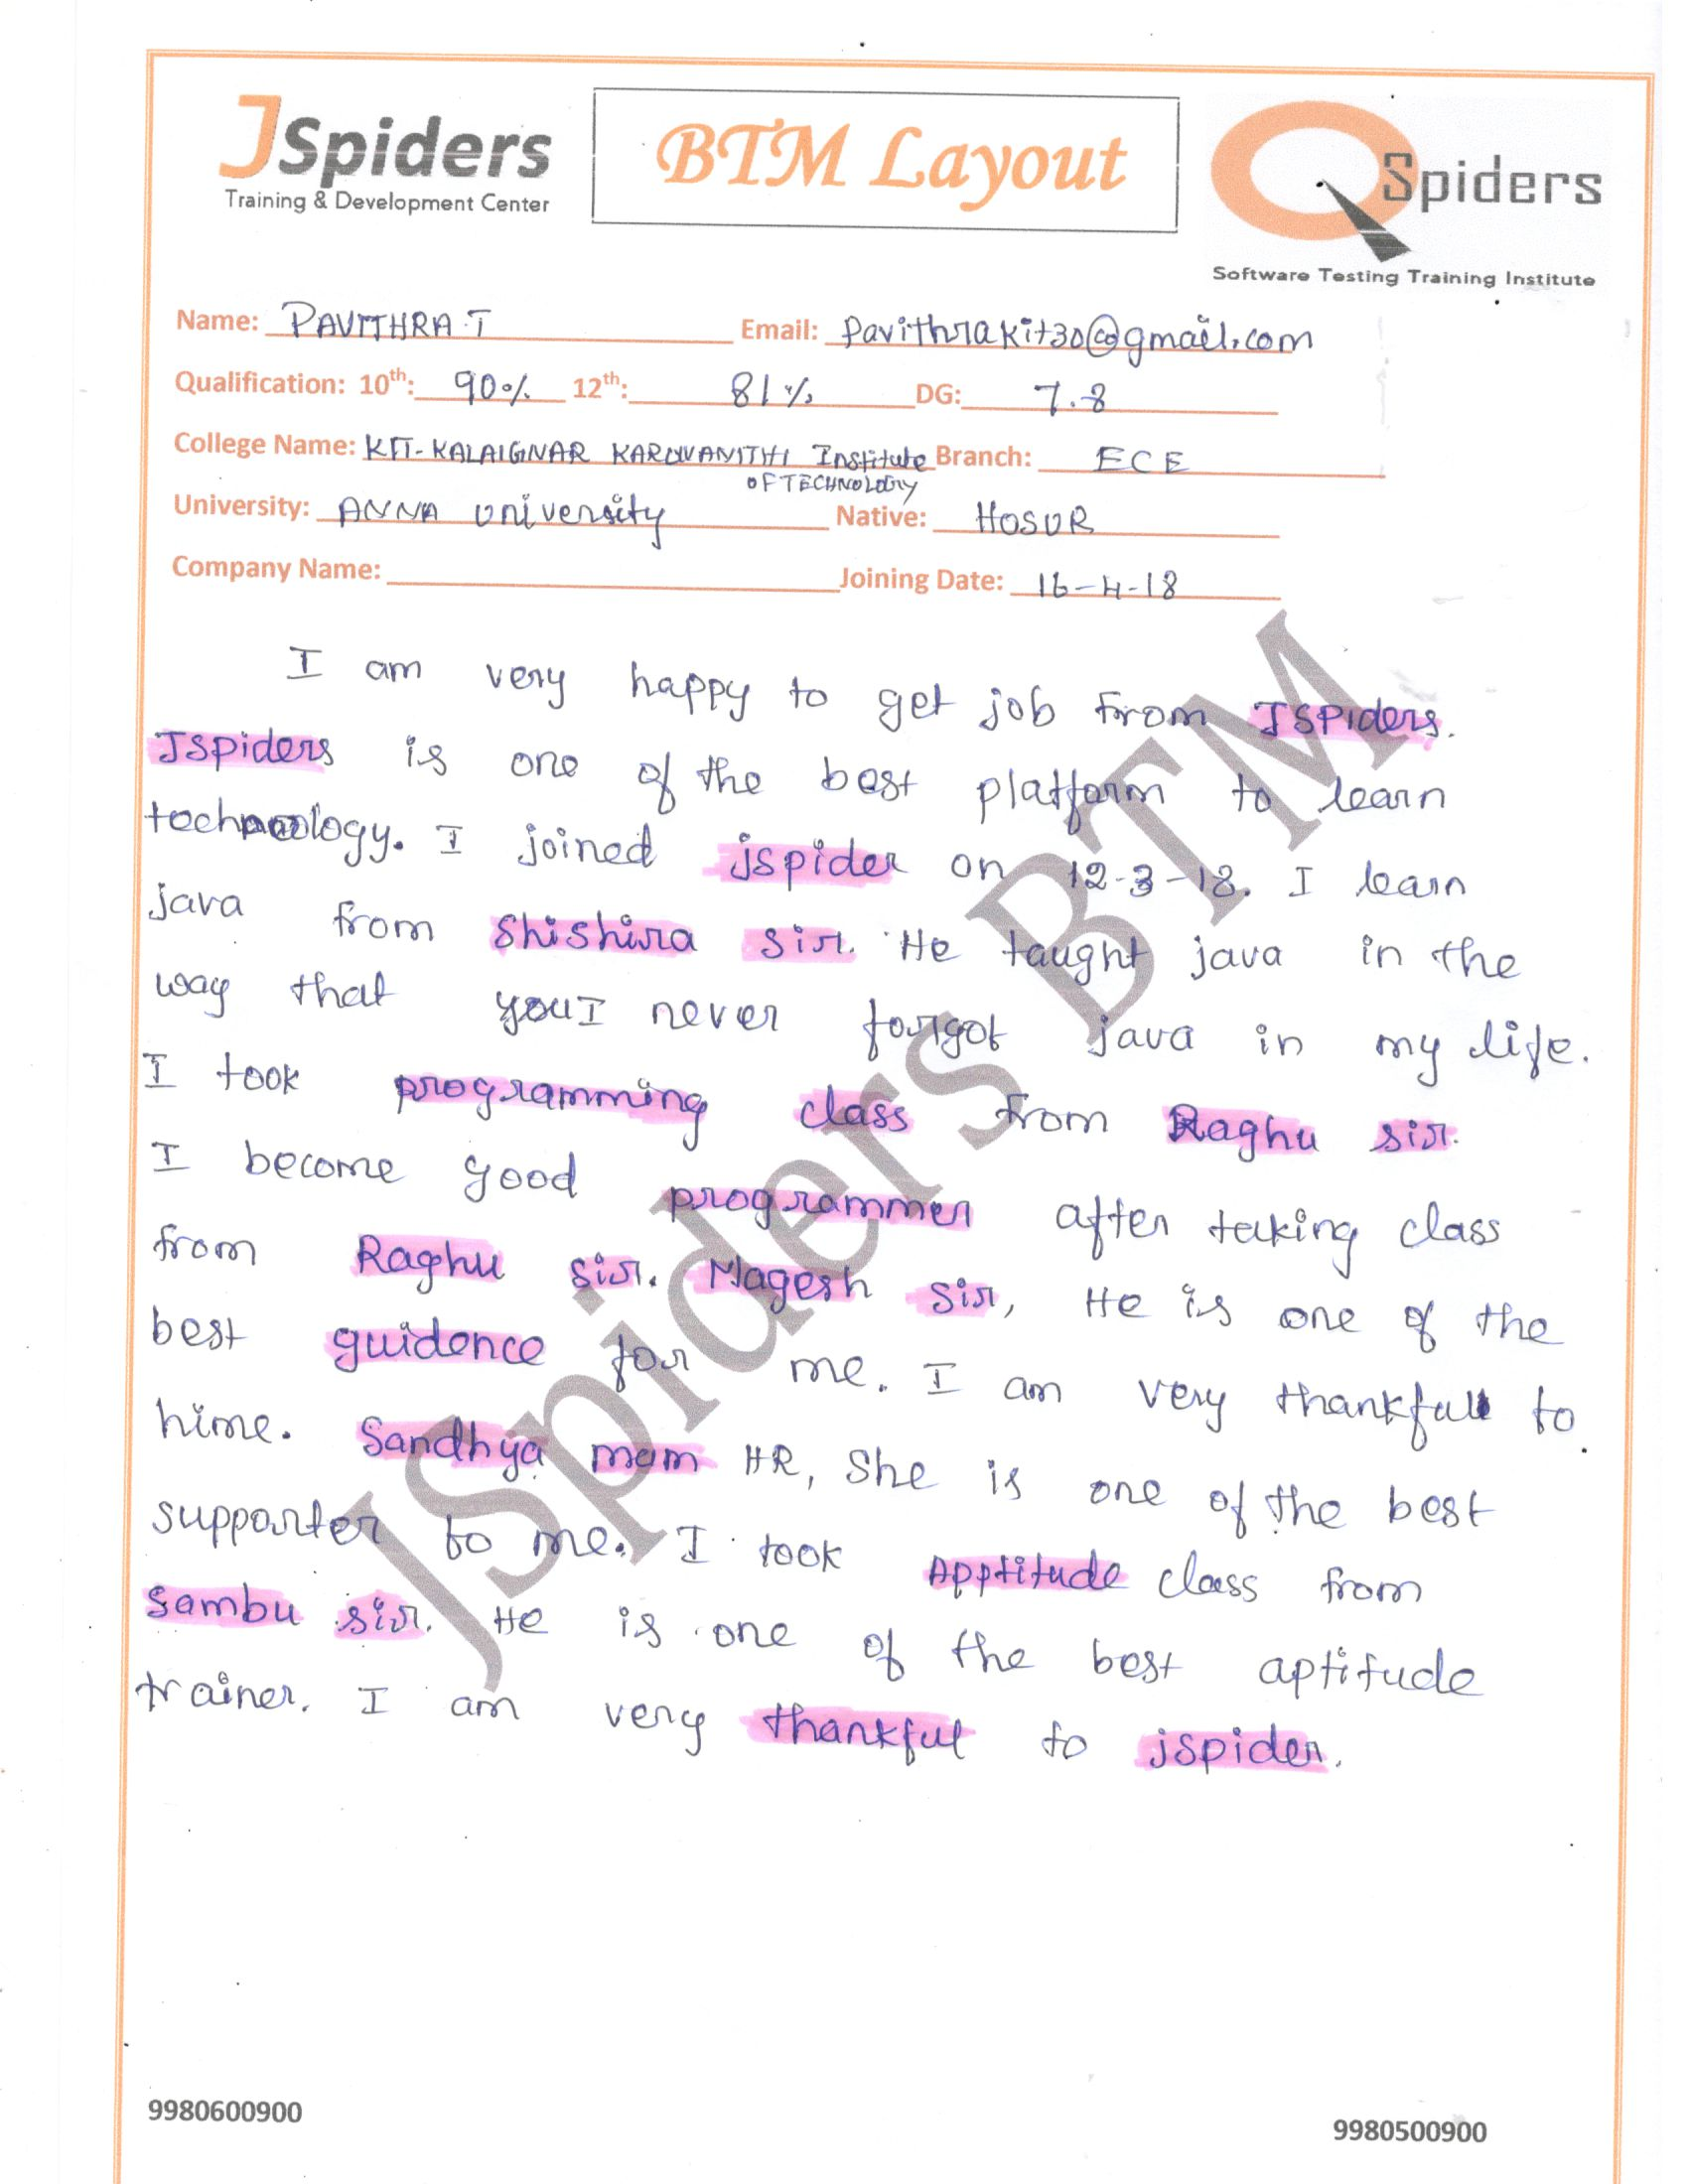 JSpiders
Training & Development Center
BTM Layout
QSpiders
Software Testing Training Institute
Name: PAVITHRA.T Email: pavithrakit30@gmail.com
Qualification: 10th: 90% 12th: 81% DG: 7.8
College Name: KIT-KALAIGNAR KARUNANITHI Institute Branch: ECE
OF TECHNOLOGY
University: ANNA University Native: HOSUR
Company Name: Joining Date: 16-4-18
I am very happy to get job from JSPiders.
JSpiders is one of the best platform to learn
technology. I joined jspider on 12-3-18. I learn
java from Shishira sir. He taught java in the
way that you I never forgot java in my life.
I took programming class from Raghu sir.
I become good programmer after taking class
from Raghu sir. Magesh sir, He is one of the
best guidence for me. I am very thankful to
hime. Sandhya mam HR, She is one of the best
supporter to me. I took Apptitude class from
Sambu sir. He is one of the best aptitude
trainer. I am very thankful to jspider.
JSpiders BTM
9980600900
9980500900